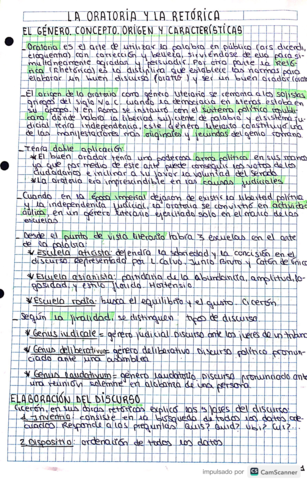 LA ORATORÍA Y LA RETÓRICA
EL GÉNERO. CONCEPTO, ORIGEN Y CARACTERÍSTICAS
- Oratoria es el arte de utilizar la palabra en público (ars dicendi,
eloquentia) con corrección y belleza, sirviéndose de ella para si-
multáneamente agradar y persuadir. Por otra parte la Retó-
rica (Rhetórica) es la disciplina que establece las normas para
elaborar un buen discurso (orator) y ser un buen orador
- El origen de la oratoria como género literario se remonta a los sofistas
griegos del siglo V a.C. cuando la democracia en Atenas estaba en
su apogeo. Y en Roma se instauró con el sistema político republi-
cano, donde habría la libertad suficiente de palabra y el sistema ju-
dicial tenía independencia, este género literario constituyó una
de las manifestaciones más originales y fecundas del genio romano
- Tenía doble aplicación:
El buen orador tenía una poderosa arma política en sus manos
ya que por medio de este arte puede conseguir los votos de los
ciudadanos e inclinar a su favor la voluntad del Senado.
La oratoria era imprescindible en las causas judiciales.
- Cuando en la época imperial dejaron de existir la libertad política
y la independencia judicial, la oratoria se convirtió en actividad
lúdica, en un género literario ejercitado solo en el marco de las
escuelas
- Desde el punto de vista literario había 3 escuelas en el arte
de la palabra:
Escuela aticista: defendía la sobriedad y la concisión en el
discurso. Representada por L. Calvo, Junio Bruto y Catón de Útica
Escuela asianista: partidaria de la abundancia, amplitud,
y estilo florido. Hortensio.
Escuela rodia: busca el equilibrio y el gusto. Cicerón.
- Según la finalidad, se distinguen tipos de discurso
Genus iudiciale = género judicial. Discurso ante los jueces de un tribunal
Genus deliberativum = género deliberativo. Discurso político pronun-
ciado ante una asamblea
Genus laudativum = género laudatorio. Discurso pronunciado ante
una reunión solemne en alabanza de una persona.
ELABORACIÓN DEL DISCURSO
Cicerón, en sus obras retóricas explicó las 5 fases del discurso
1 Inventio: consiste en la búsqueda de todos los datos ade-
cuados. Responde a las preguntas Quis? Quid? Ubi? Cur? ...
2 Dispositio: ordenación de todos los datos
1
impulsado por CS CamScanner